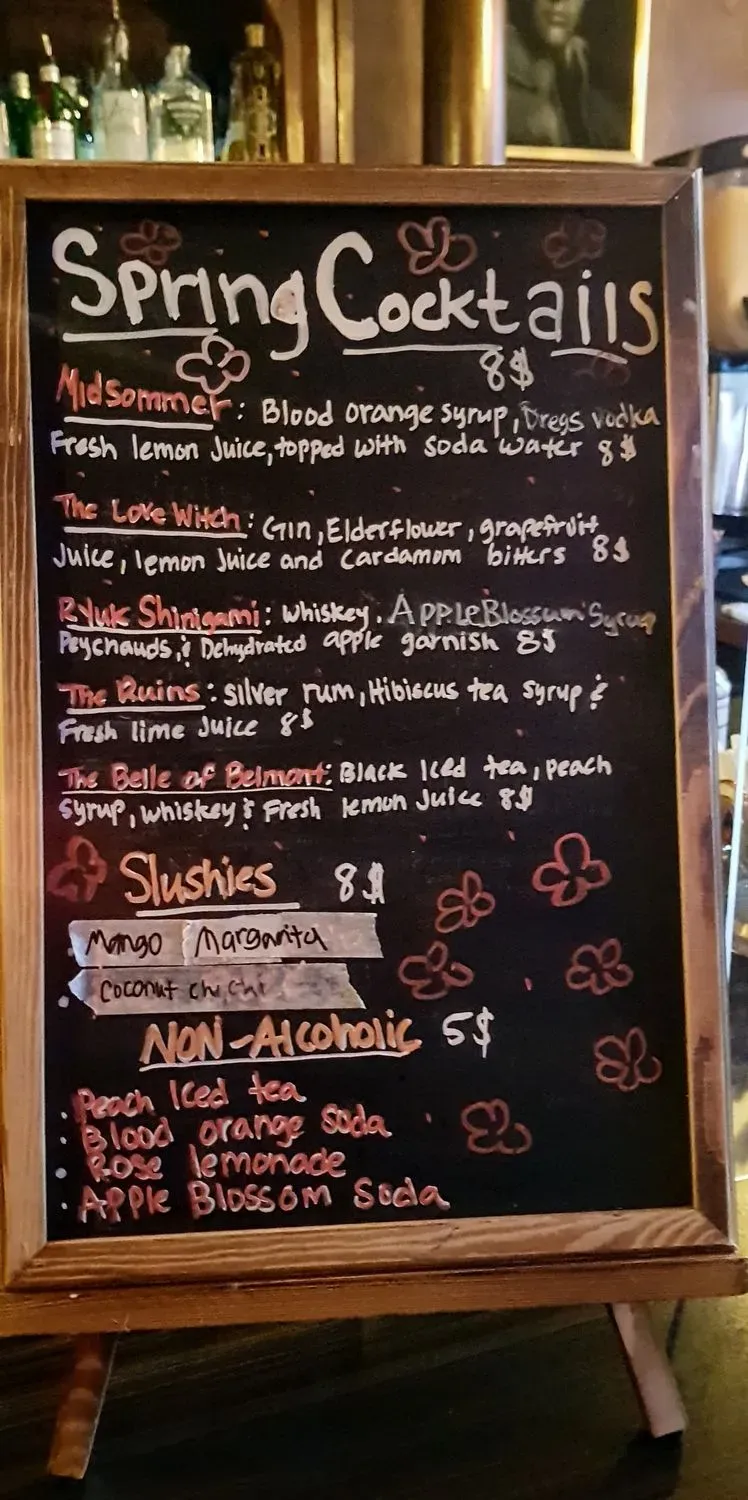 Spring Cocktails
8$
Midsommer: Blood orange syrup, Dregs vodka
Fresh lemon Juice, topped with soda water 8$
The Love Witch: Gin, Elderflower, grapefruit
Juice, lemon Juice and cardamom bitters 8$
Ryuk Shinigami: whiskey, Apple Blossum Syrup
Peychauds, & Dehydrated apple garnish 8$
The Ruins: silver rum, Hibiscus tea syrup &
Fresh lime Juice 8$
The Belle of Belmont: Black Iced tea, peach
syrup, whiskey & Fresh lemon Juice 8$
Slushies 8$
• Mango Margarita
• Coconut chi chi
NON-Alcoholic 5$
• Peach Iced tea
• Blood orange soda
• Rose lemonade
• Apple Blossom Soda